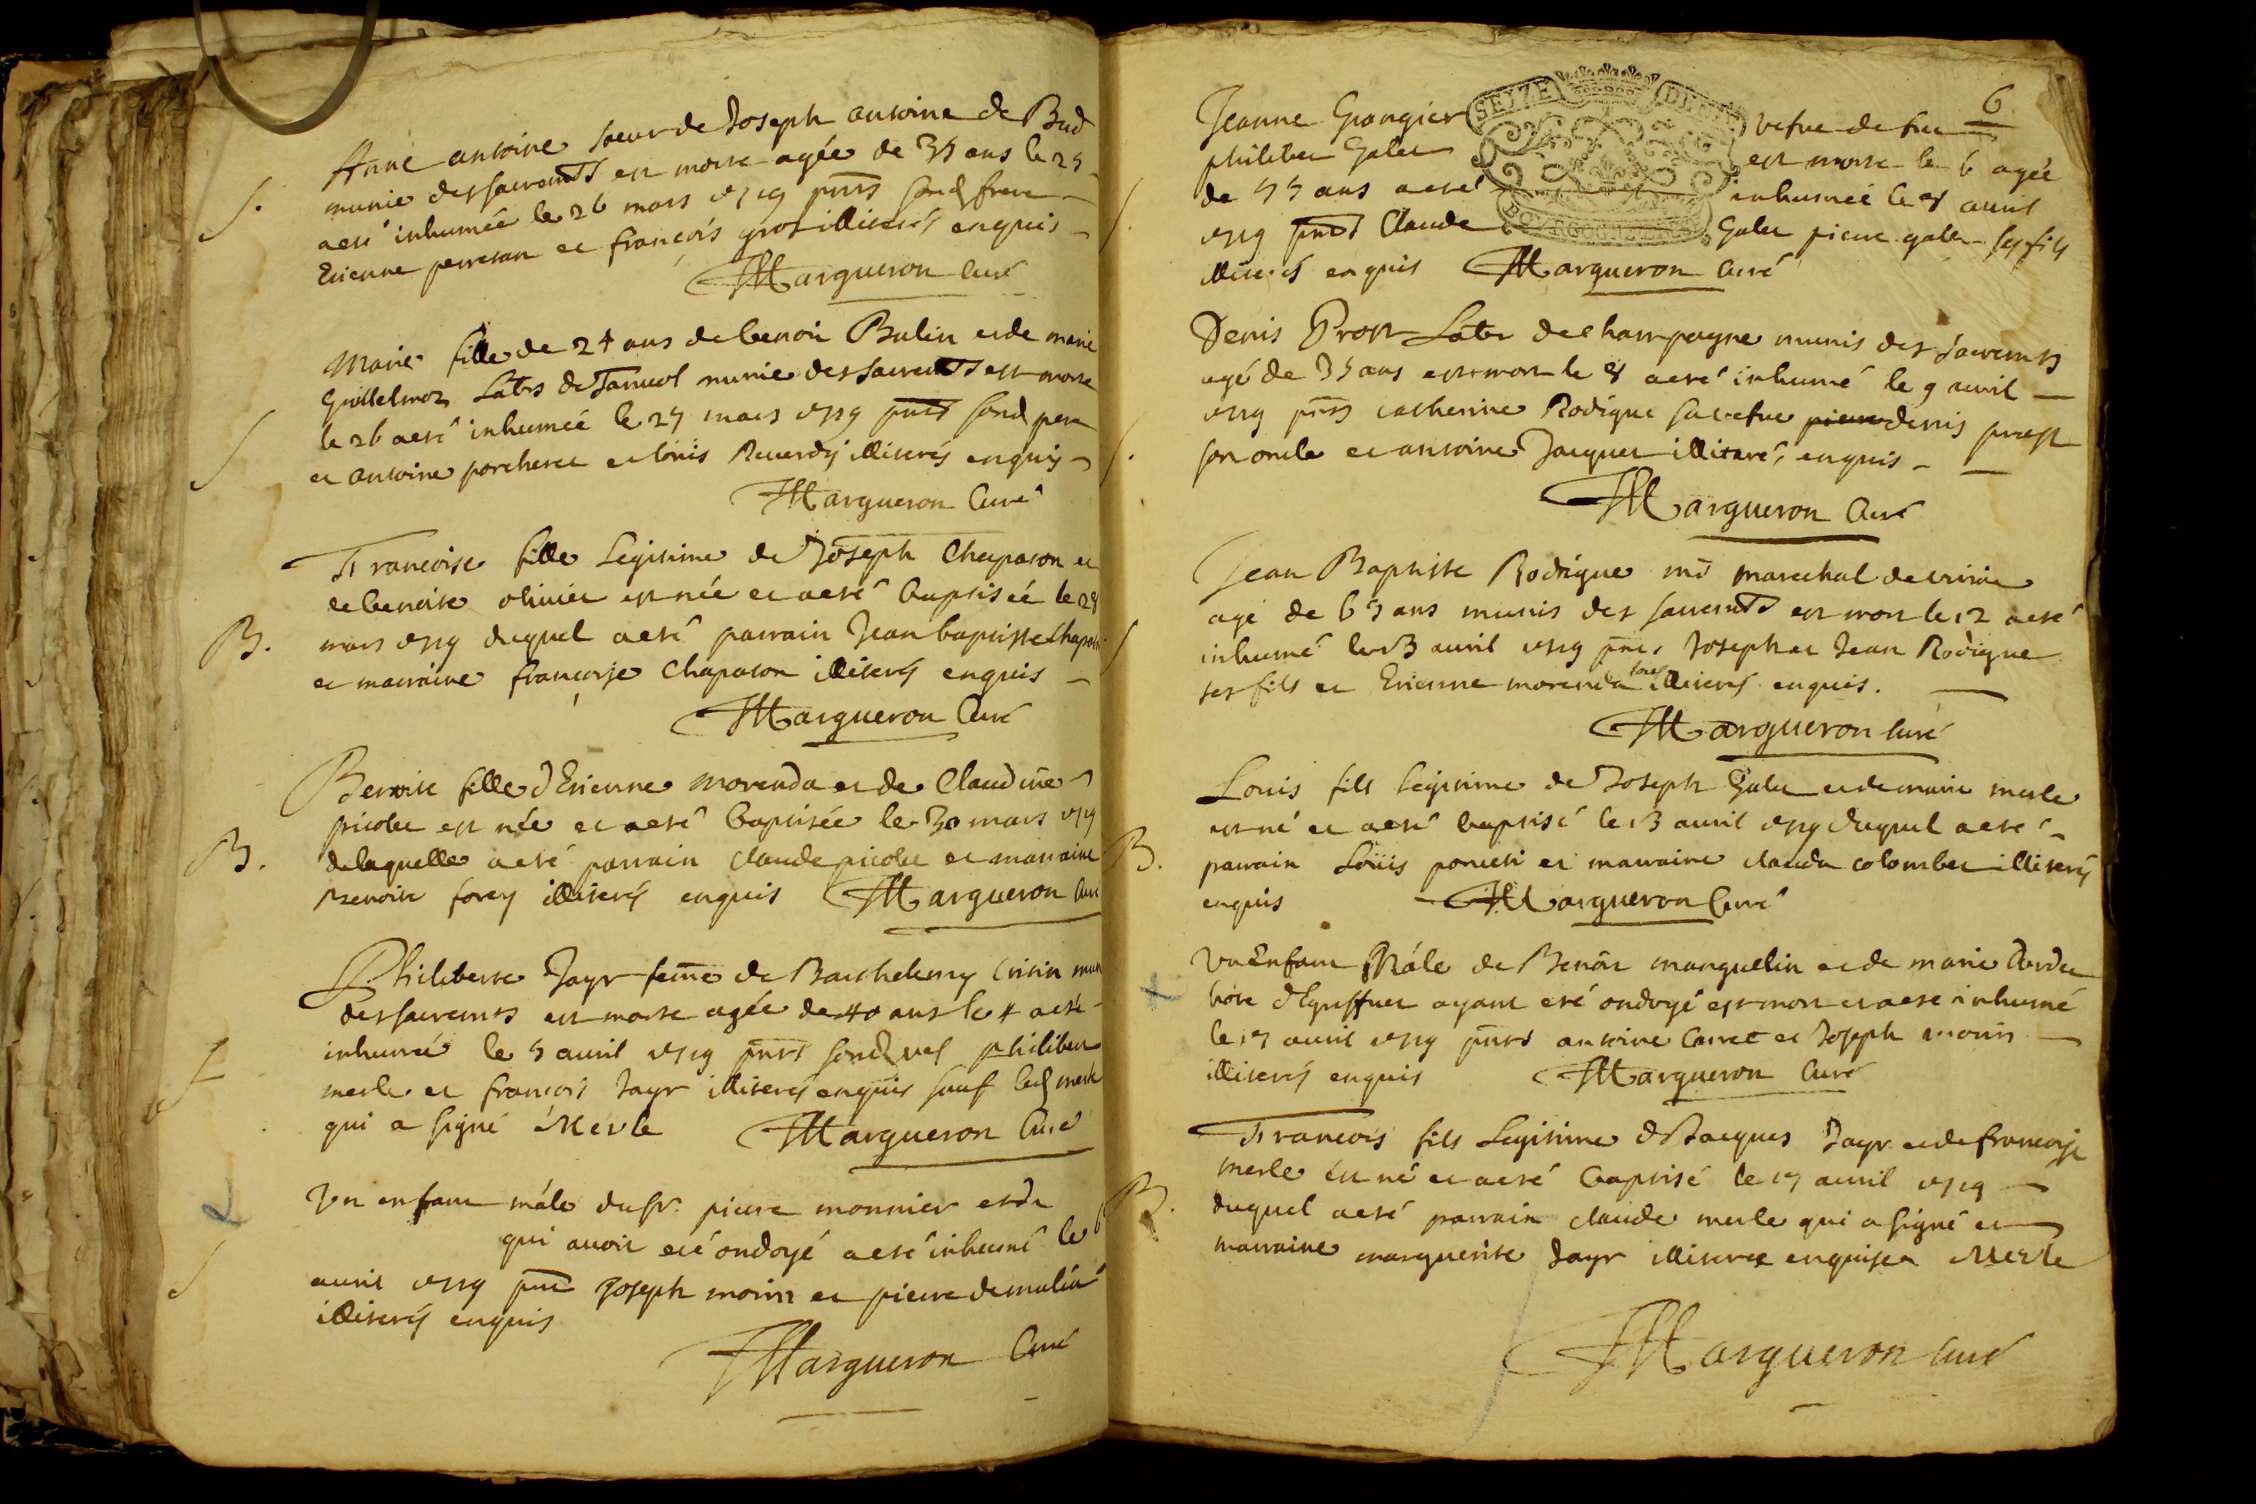 Anne antoine soeur de Joseph antoine de Bud
S. munie des sacremts est morte agée de 35 ans le 25
a eté inhumée le 26 mars 1719 pnts sond frere
Etienne perretan et françois gros illiterés enquis
Margueron Curé
Marie fille de 24 ans de benoit Bulin et de marie
Guillelmoz Labrs de munie des sacremts est morte
S le 26 a eté inhumée le 27 mars 1719 pnts sond pere
et antoine porcheret et loüis Reverdy illiterés enquis
Margueron Curé
Francoise fille Legitime de Joseph Chapaton et
de benoite olivier est née et a eté baptisée le 28
B. mars 1719 duquel a eté parrain Jean baptiste Chapaton
et marraine françoise Chapaton illiterés enquis
Margueron Curé
Benoite fille d'Etienne morenda et de Claudine
picolet est née et a eté baptisée le 30 mars 1719
B. de laquelle a eté parrain claude picolet et marraine
Benoite forey illiterés enquis Margueron Curé
Philiberte Jayr feme de Barthelemy mun
des sacremts est morte agée de 40 ans le 4 a eté
inhumée le 5 avril 1719 pnts sond philibert
merle et francois Jayr illiterés enquis sauf led merle
qui a signé Merle Margueron Curé
Un enfant mâle du sr. pierre monnier et de
qui avoit eté ondoyé a eté inhumé le 6
S avril 1719 pnt Joseph morin et pierre demulin
illiterés enquis
Margueron Curé
6
SEIZE DEN
BOURGOGNE
Jeanne Grangier vefve de feu
philibert Galet est morte le 6 agée
S de 55 ans a eté inhumée le 8 avril
1719 pnts Claude Galet pierre galet ses fils
illiterés enquis Margueron Curé
Denis Prost Labr de champagne munis des sacremts
agé de 35 ans est mort le 8 a eté inhumé le 9 avril
1719 pnts catherine Rodigue sa vefve pierre denis prost
S. son oncle et antoine Jacquet illiterés enquis
Margueron Curé
Jean Baptiste Rodrigue md marechal de
agé de 65 ans munis des sacremts est mort le 12 a eté
S inhumé le 13 avril 1719 pnts Joseph et Jean Rodigue
ses fils et Etienne morenda tous illiterés enquis.
Margueron Curé
Louis fils legitime de Joseph Galet et de marie merle
est né et a eté baptisé le 13 avril 1719 duquel a eté
B. parrain Loüis et marraine clauda colombet illiterés
enquis Margueron Curé
Un Enfant Mâle de Benoit manguelin et de marie
hote d'Eguffuet ayant eté ondoyé est mort et a eté inhumé
le 15 avril 1719 pnts antoine Carret et Joseph morin
illiterés enquis Margueron Curé
Francois fils Legitime de Jacques Jayr et de francoise
merle est né et a eté baptisé le 15 avril 1719
B. duquel a eté parrain claude merle qui a signé et
marraine marguerite Jayr illiteree enquise Merle
Margueron Curé